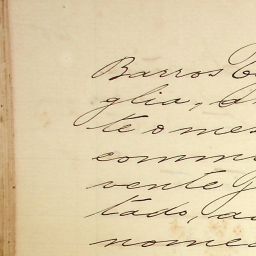 Barros
glia,
te o mes
commu
vente
tado, a
nomea